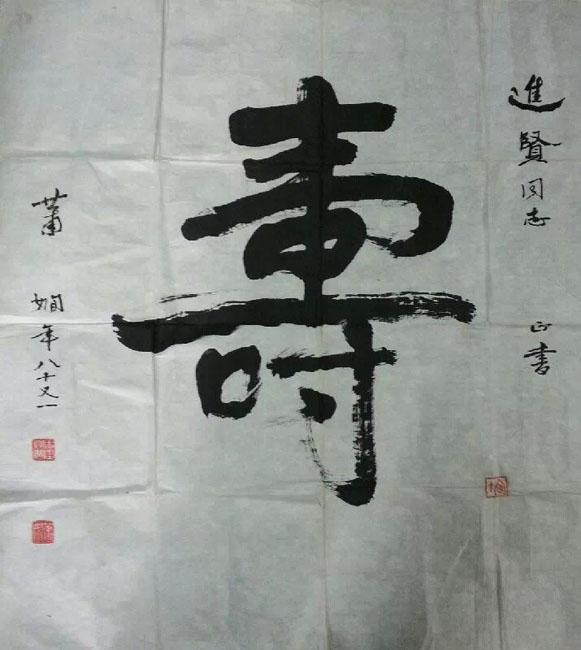 進賢同志
正書
壽
蕭
嫺年八十又一